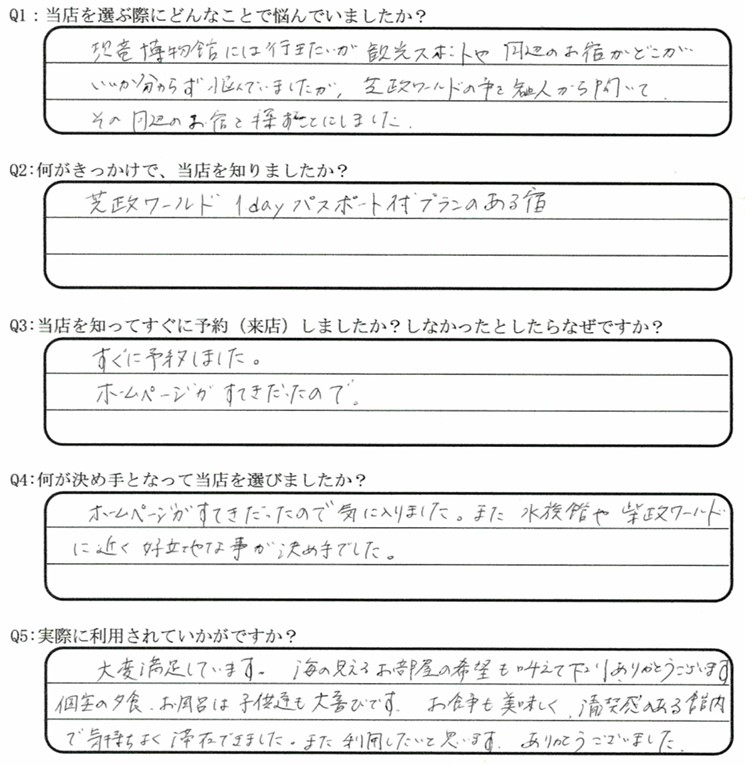 Q1：当店を選ぶ際にどんなことで悩んでいましたか？
恐竜博物館には行きたいが 観光スポットや 周辺のお宿がどこが
いいか分からず悩んでいましたが、芝政ワールドの事を知人から聞いて
その周辺のお宿を探すことにしました.
Q2：何がきっかけで、当店を知りましたか？
芝政ワールド 1dayパスポート付プランのある宿
Q3：当店を知ってすぐに予約（来店）しましたか？しなかったとしたらなぜですか？
すぐに予約しました。
ホームページがすてきだったので。
Q4：何が決め手となって当店を選びましたか？
ホームページがすてきだったので気に入りました。また 水族館や 柴政ワールド
に近く 好立地な事が決め手でした。
Q5：実際に利用されていかがですか？
大変満足しています。 海の見えるお部屋の希望も叶えて下りありがとうございます
個室の夕食、お風呂は子供達も大喜びです. お食事も美味しく、清潔感のある館内
で気持ちよく滞在できました。また利用したいと思います. ありがとうございました.